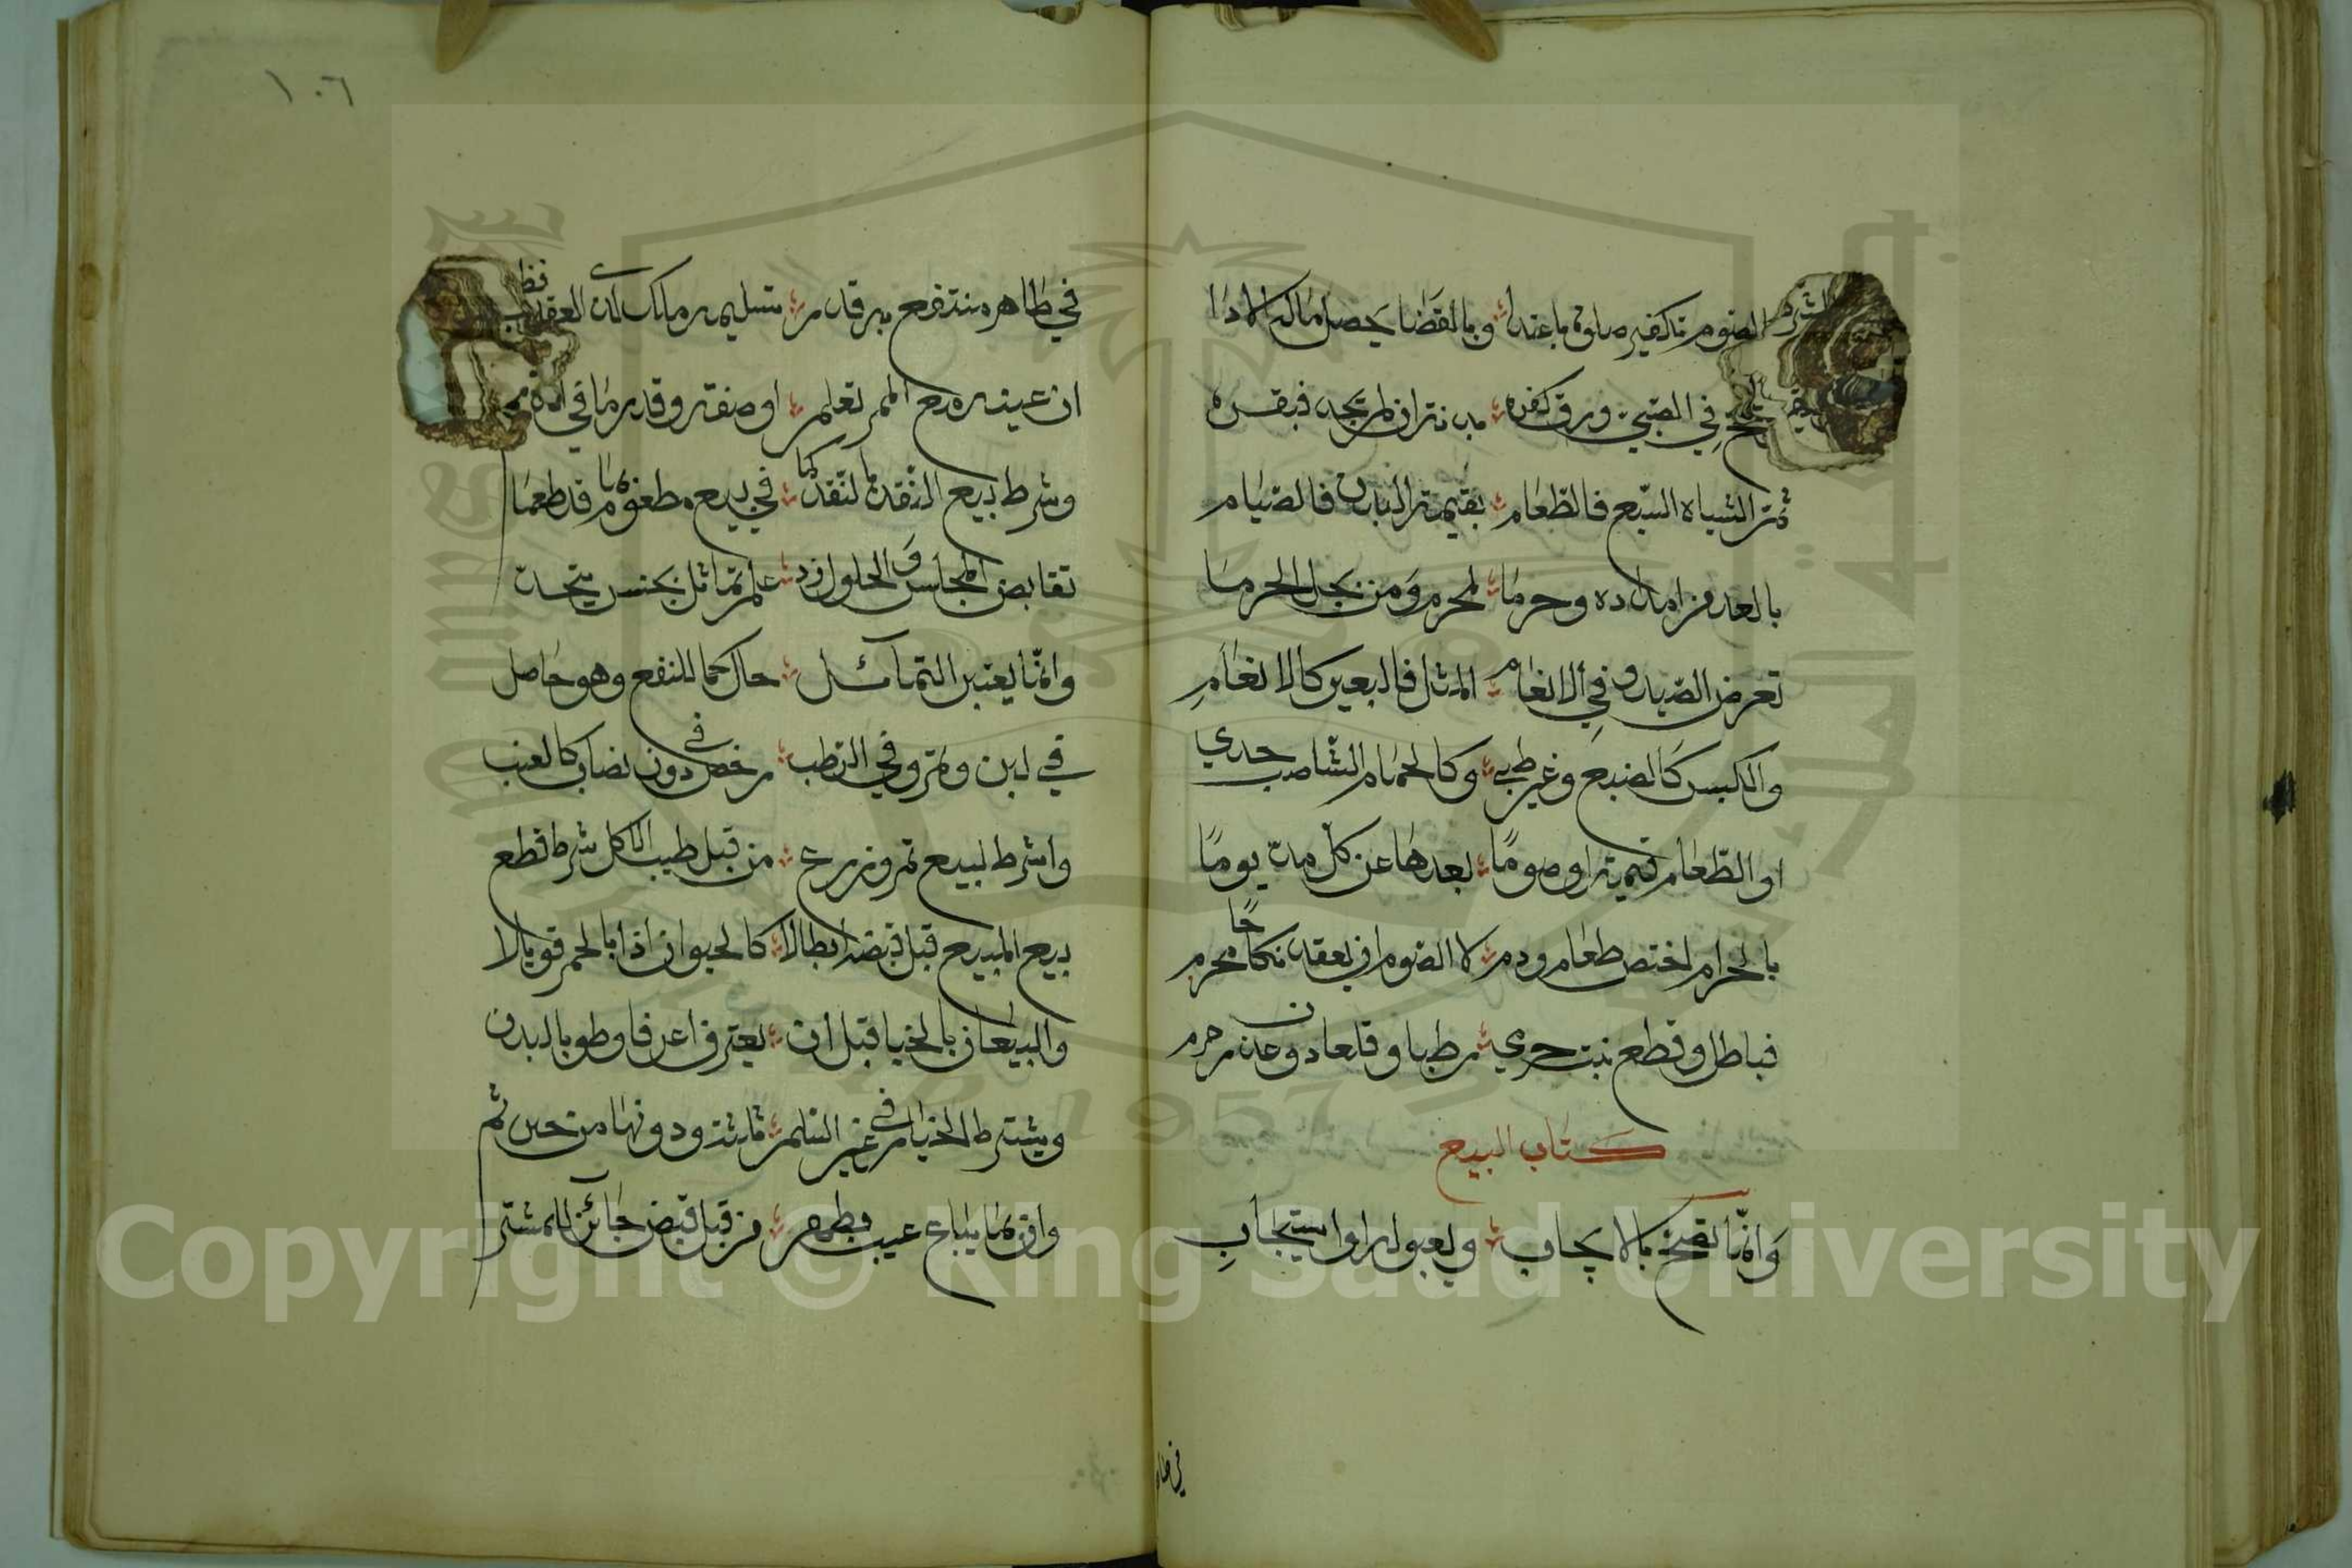 الصوم تكفير صلوة باعتدا وبالقضا يحصل ماله الادا
في الصبي ورق كفره بدنة ان لم يجد فبقره
ثم الشياه السبع فالطعام بقيمة البدن فالصيام
بالعد من امداده وحرما لمحرم ومن يحل الحرما
تعرض الصيد وفي الانعام المثل فالبعير كالانعام
والكبش كالضبع وغير ظبي وكالحمام الشا ضب جدي
او الطعام قيمة او صوما بعدها عن كل مد يوما
بالحرم اختص طعام ودم لا الصوم ان يعقد نكاحا محرم
فباطل وقطع نبت حرمي رطبا وقلعا دون عذر حرم
كتاب البيع
وانما يصح بالايجاب وبقبوله او استيجاب
في طا
١٠٦
في طاهر منتفع به قدر تسليمه ملك لذي العقد نظر
ان عينه مع الممر تعلم او صفة وقدر ما في الذمم
وشرط بيع النقد بالنقد كما في بيع مطعوم بما قد طعما
تقابض المجلس والحلول زد علم تماثل بجنس يتحد
وانما يعتبر التماثل حال كما للنفع وهو حاصل
في لبن وتمر وفي الرطب رخص في دون نصاب كالعنب
واشرط لبيع ثمر وزرع من قبل طيب الاكل شرط قطع
بيع المبيع قبل قبض ابطلا كالحيوان اذا بالحم قوبلا
والبيعان بالخيار قبل ان يعترفا عرفا وطو بالبدن
ويشترط الخيار في غير السلم ثلثة ودونها من حين ثم
وان بما يباع عيب يظهر من قبل قبض جائز للمشتر